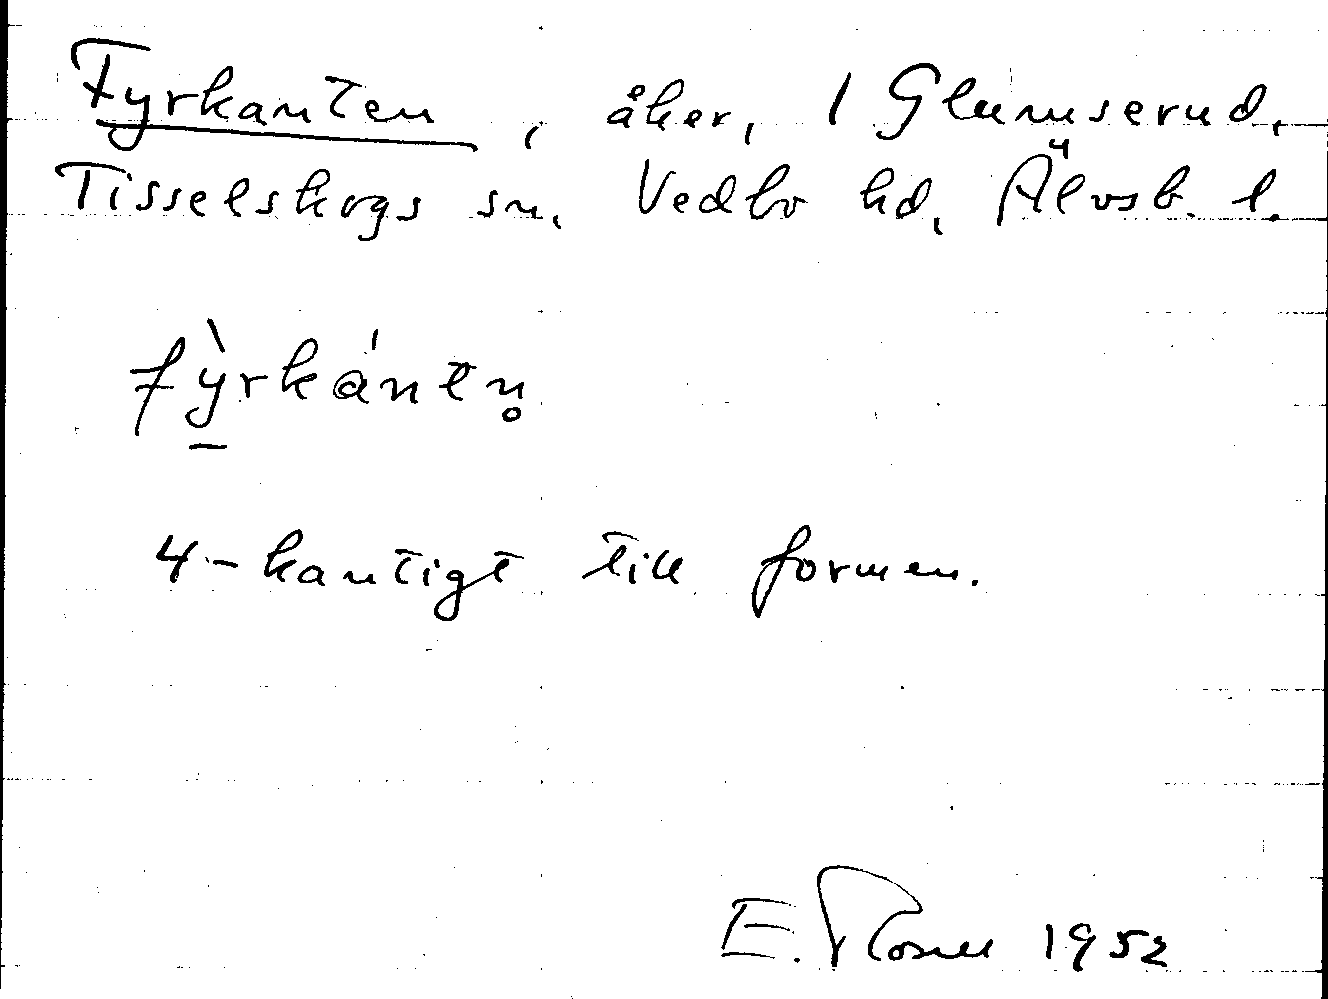 Fyrkanten, åker, 1 Glumserud,
Tisselskogs sn. Vedbo hd, Älvsb. l.
fỳ̠rkántn̥
4-kantigt till formen.
E. 1952